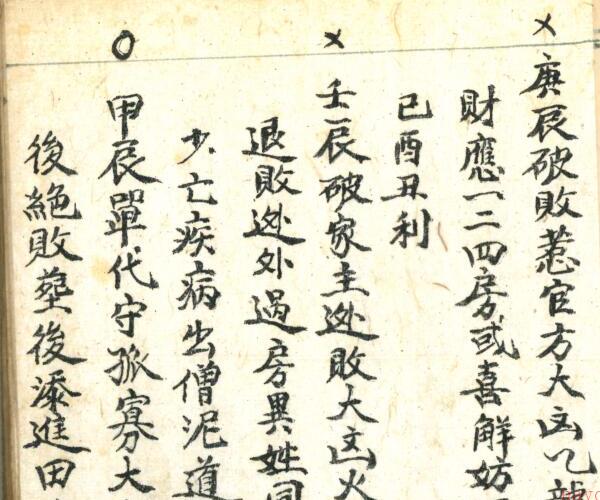 庚辰破敗惹官方大凶乙龍
財應一二四房或喜解妨
巳酉丑利
壬辰破家主逃敗大凶火
退敗逃外過房異姓同
少亡疾病出僧泥道
甲辰單代守孤寡大
後絕敗塟後添進田